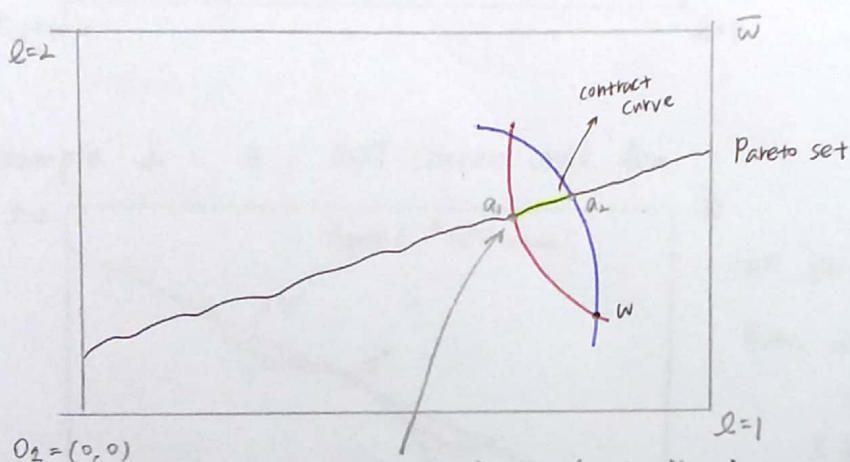 ω̄
l=2
contract
curve
Pareto set
a₁
a₂
ω
l=1
O₂=(0,0)